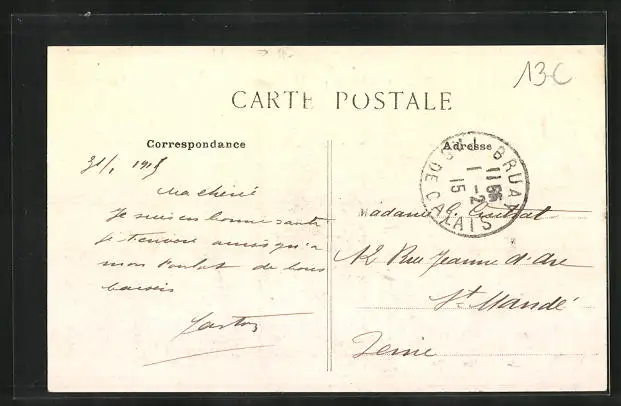 13 C
CARTE POSTALE
Correspondance
Adresse
BRUAY
PAS DE CALAIS
11
1-2
15
31/1 1915
Ma chérie
Je suis en bonne santé
je t'envoie ainsi qu'a
mon de bons
baisers
Gaston
Madame G.
12 Rue Jeanne d'Arc
St. Mandé
Seine